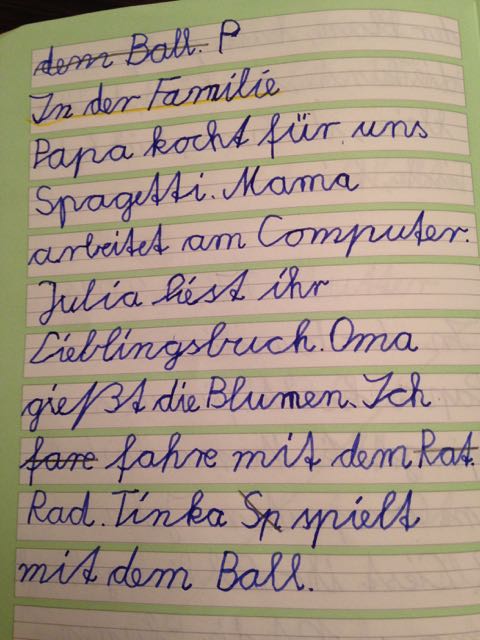 dem Ball. P
In der Familie
Papa kocht für uns
Spagetti. Mama
arbeitet am Computer.
Julia liest ihr
Lieblingsbuch. Oma
gießt die Blumen. Ich
fare fahre mit dem Rat.
Rad. Tinka Sp spielt
mit dem Ball.